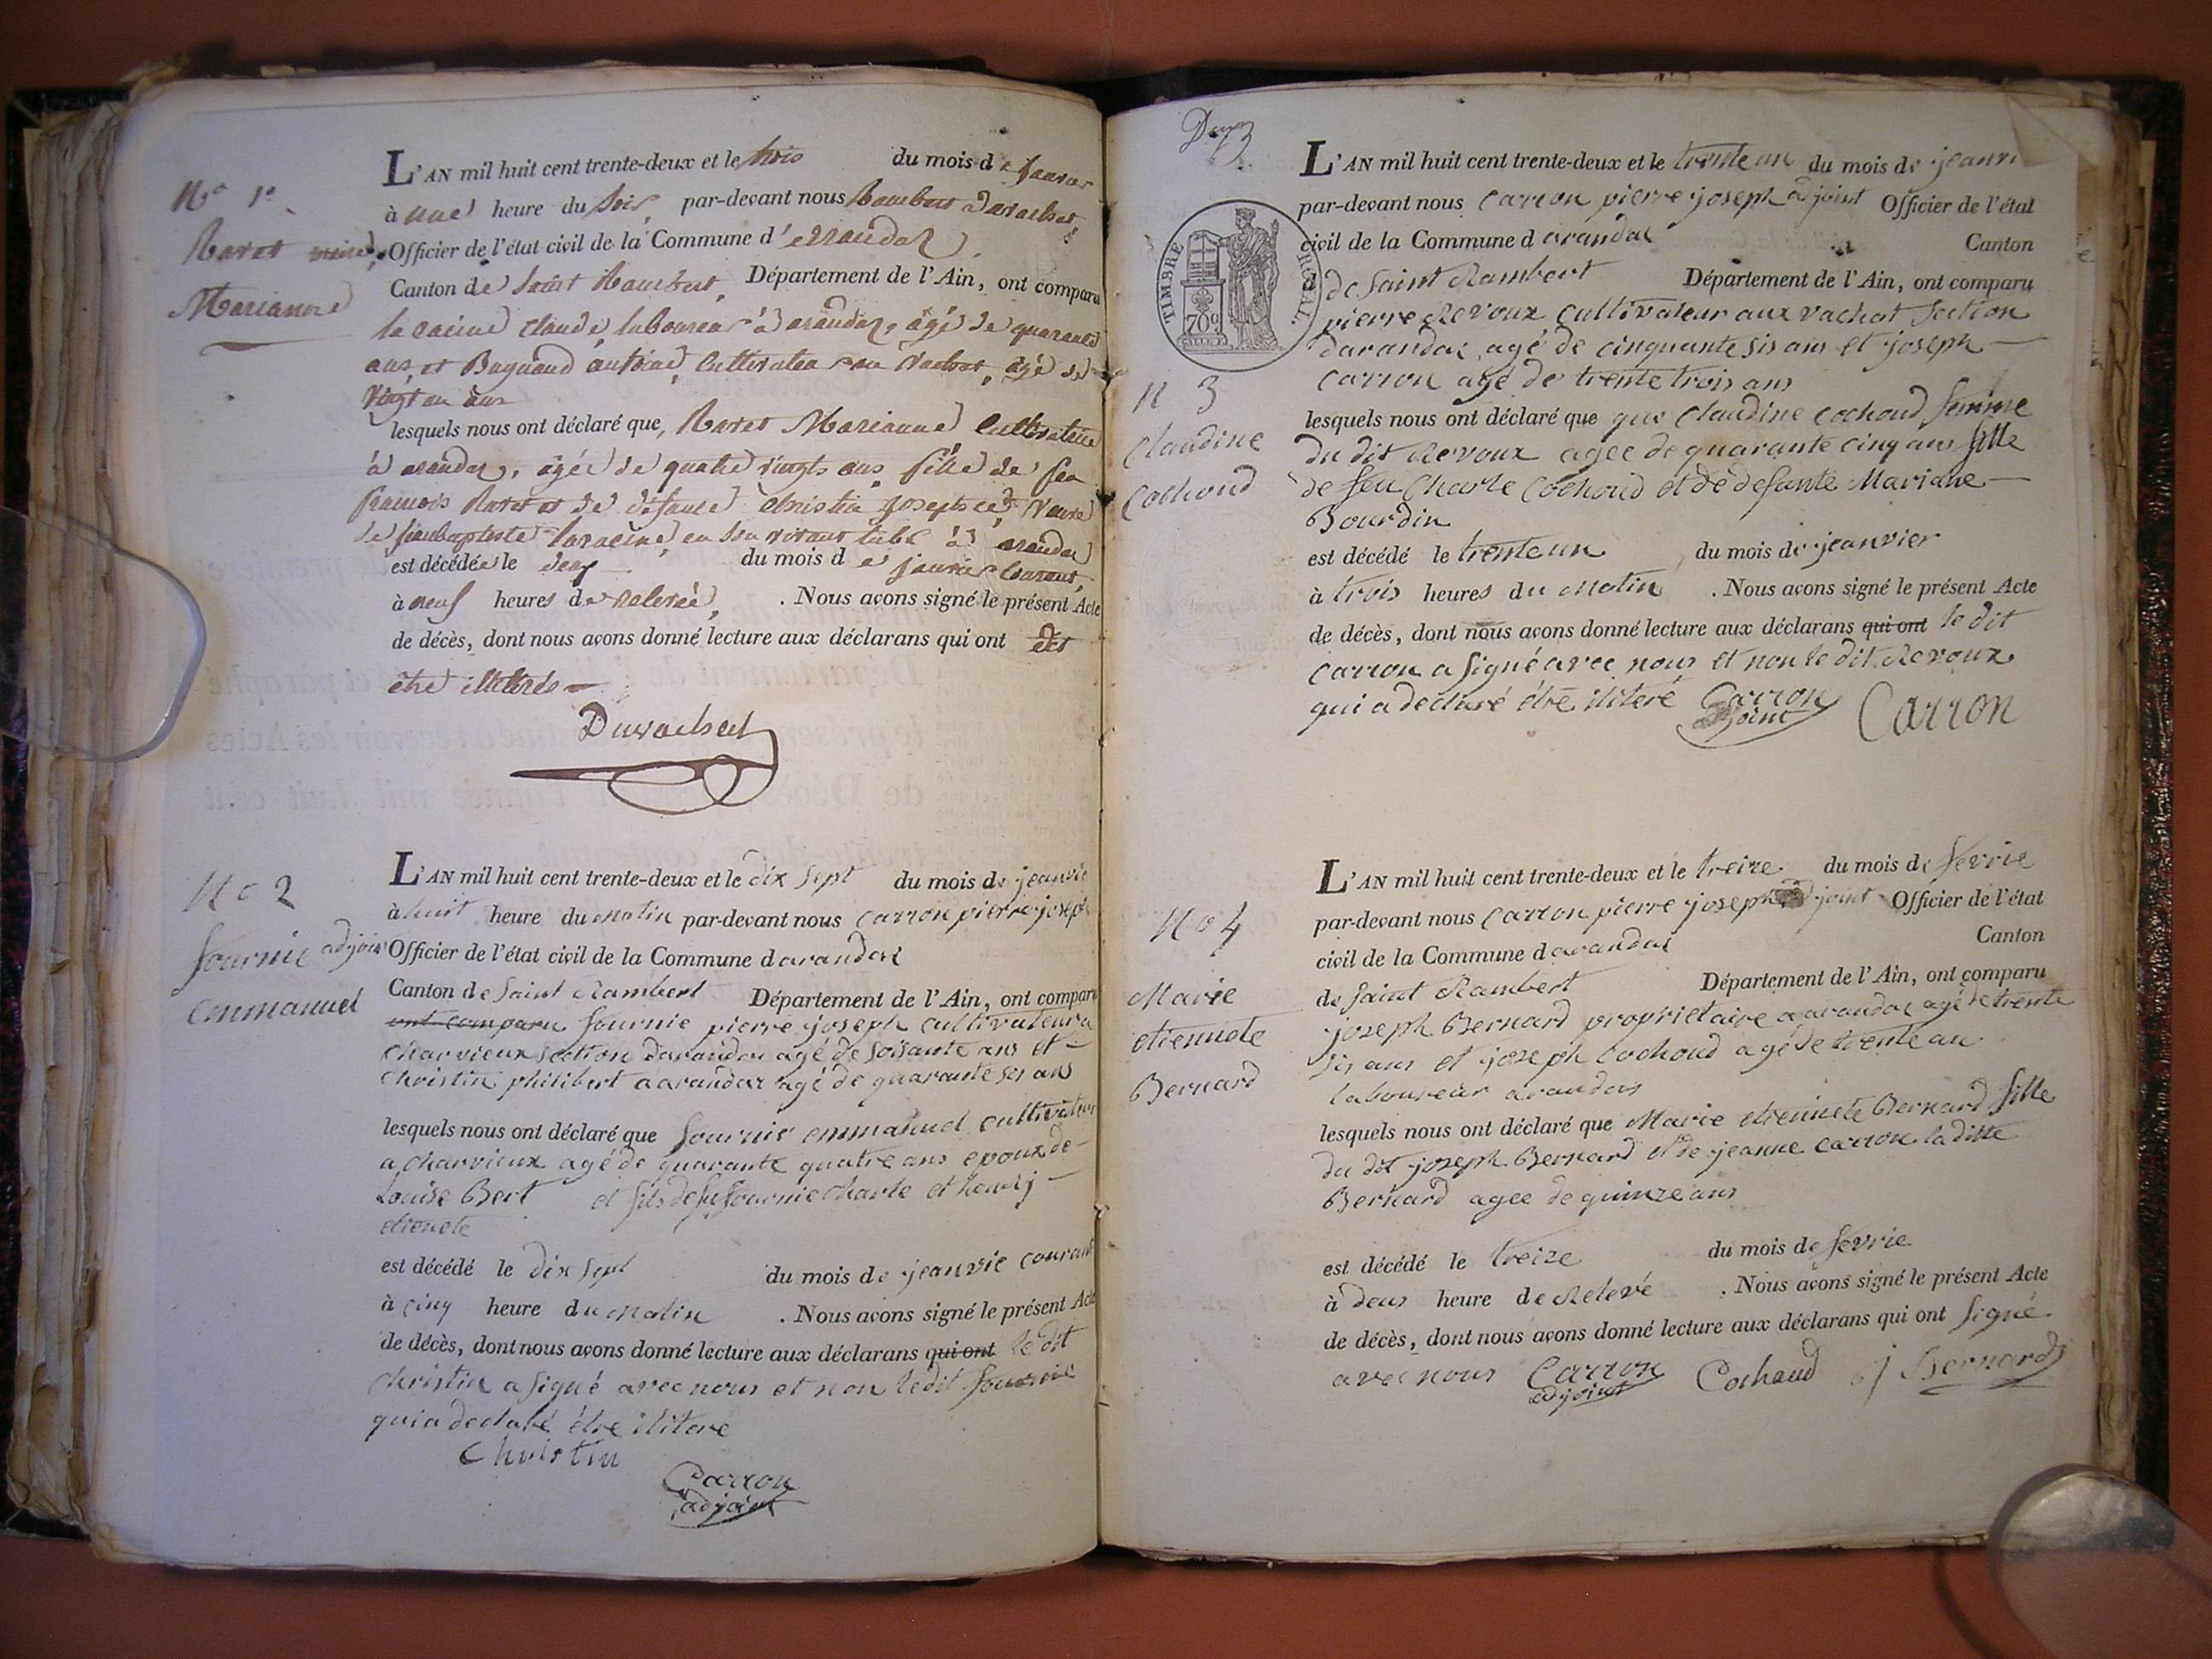 N° 1er
Ravet
Marianne
maire
L'AN mil huit cent trente-deux et le trois du mois de janvier
à une heure du soir, par-devant nous Rambert Duvachat
Officier de l'état civil de la Commune d'arandaz
Canton de Saint Rambert, Département de l'Ain, ont comparu
claude, laboureur à arandaz, âgé de quarante
ans, et antoine, Cultivateur au Vachat, âgé de
vingt un ans
lesquels nous ont déclaré que, Ravet Marianne Cultivatrice
à arandaz, âgée de quatre vingts ans, fille de feu
françois Ravet et de défunte Christin Josephte, veuve
de jeanbaptiste en son vivant à arandaz
est décédée le deux du mois de janvier Courant,
à neuf heures de Relevée, . Nous avons signé le présent Acte
de décès, dont nous avons donné lecture aux déclarans qui ont dit
être illitérés
Duvachat
N o 2
fournie
emmanuel
adjoin
L'AN mil huit cent trente-deux et le dix sept du mois de jeanvie
à huit heure du matin par-devant nous Carron pierre joseph
Officier de l'état civil de la Commune d arandas
Canton de Saint Rambert Département de l'Ain, ont comparu
ont comparu fournie pierre joseph cultivateur a
charvieux section darandas agé de soisante ans et
christin philibert a arandas agé de quarante sis ans
lesquels nous ont déclaré que fournie emmanuel cultivateur
a charvieux agé de quarante quatre ans epoux de
Louise Bert et fils de feu fournie Charle et henrij
etienete
est décédé le dix sept du mois de jeanvie courant
à cinq heure du matin . Nous avons signé le présent Acte
de décès, dont nous avons donné lecture aux déclarans qui ont le dit
christin a signé avec nous et non le dit fournie
qui a declaré étre ilitere
Christin
Carron
adjoint
TIMBRE ROYAL.
70c
N 3
Claudine
Cochoud
L'AN mil huit cent trente-deux et le trente un du mois de jeanvi
par-devant nous Carron pierre joseph adjoint Officier de l'état
civil de la Commune d arandas Canton
de Saint Rambert Département de l'Ain, ont comparu
pierre Revoux cultivateur aux vachat section
darandas agé de cinquante sis ans et joseph
Carron agé de trente trois ans
lesquels nous ont déclaré que que Claudine Cochoud femme
du dit Revoux agee de quarante cinq ans fille
de feu Charle Cochoud et de defante Mariane
Bourdin
est décédé le trente un du mois de jeanvier
à trois heures du Matin . Nous avons signé le présent Acte
de décès, dont nous avons donné lecture aux déclarans qui ont le dit
Carron a signé avec nous et non le dit Revoux
qui a declaré étre ilitere Carron Carron
adjoint
N o 4
Marie
etiennete
Bernard
L'AN mil huit cent trente-deux et le treize du mois de fevrie
par-devant nous Carron pierre joseph adjoint Officier de l'état
civil de la Commune d arandas Canton
de Saint Rambert Département de l'Ain, ont comparu
joseph Bernard proprietaire a arandas agé de trente
sis ans et joseph Cochoud agé de trente an
laboureur arandas
lesquels nous ont déclaré que Marie etiennete Bernard fille
du dit joseph Bernard et de jeanne carron la ditte
Bernard agee de quinze ans
est décédé le treize du mois de fevrie
à deus heure de Relevé . Nous avons signé le présent Acte
de décès, dont nous avons donné lecture aux déclarans qui ont signé
avec nous Carron Cochoud j Bernard
adjoint